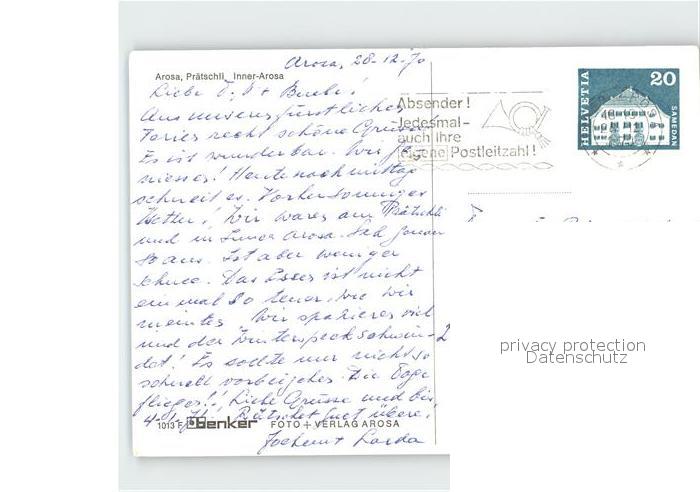 Arosa, 28.12.70
Arosa, Prätschli Inner-Arosa
Liebe
Aus unseren fürstlichen
Ferien recht schöne Grüsse
Es ist wunderbar. Wir ge
niessen! Heute nachmittag
schneit es. Vorher sonniges
Wetter! Wir waren am Prätschli
und in Inner Arosa.
so aus. Ist aber weniger
Schnee. Das Essen ist nicht
einmal so teuer, wie wir
meinten. Wir spazieren viel
und der Winterspeck schwin-
det! Es sollte nur nicht so
schnell vorbeigehen. Die Tage
fliegen!! Liebe Grüsse und bis
4.1.71! Rutschet gut übere!
1013 F Benker FOTO + VERLAG AROSA
Absender!
Jedesmal-
auch Ihre
eigene Postleitzahl!
HELVETIA
20
SAMEDAN
privacy protection
Datenschutz